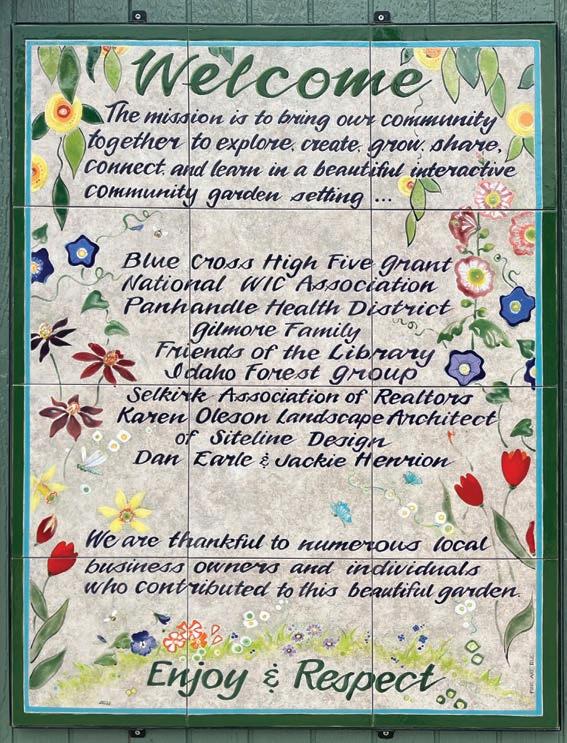 Welcome
The mission is to bring our community
together to explore, create, grow, share,
connect, and learn in a beautiful interactive
community garden setting ...
Blue Cross High Five Grant
National WIC Association
Panhandle Health District
Gilmore Family
Friends of the Library
Idaho Forest Group
Selkirk Association of Realtors
Karen Oleson Landscape Architect
of Siteline Design
Dan Earle & Jackie Henrion
We are thankful to numerous local
business owners and individuals
who contributed to this beautiful garden.
Enjoy & Respect